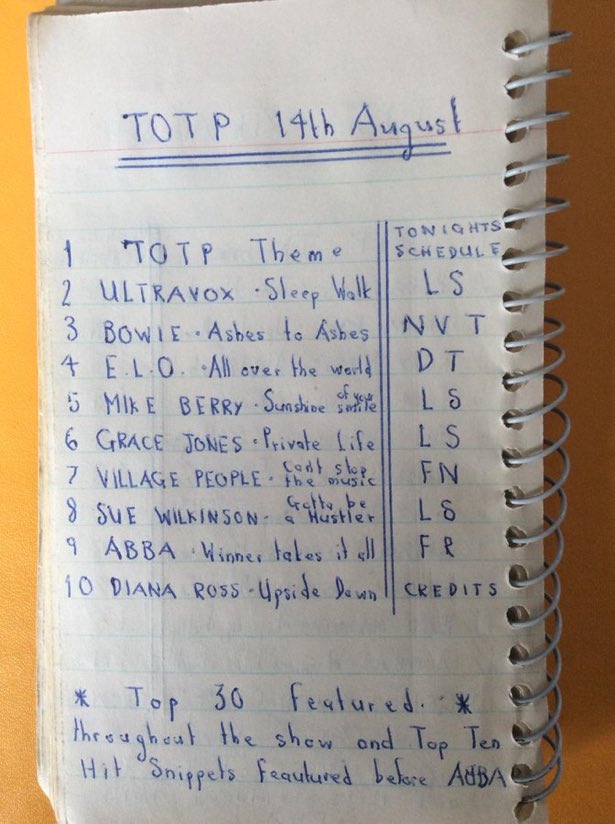 TOTP 14th August
TONIGHTS
SCHEDULE
1 TOTP Theme
2 ULTRAVOX · Sleep Walk LS
3 BOWIE · Ashes to Ashes NVT
4 E.L.O. · All over the world DT
5 MIKE BERRY · Sunshine of your smile LS
6 GRACE JONES · Private Life LS
7 VILLAGE PEOPLE - Cant stop the music FN
8 SUE WILKINSON - Gotta be a Hustler LS
9 ABBA · Winner takes it all FR
10 DIANA ROSS - Upside Down CREDITS
* Top 30 featured. *
throughout the show and Top Ten
Hit Snippets feautured before ABBA